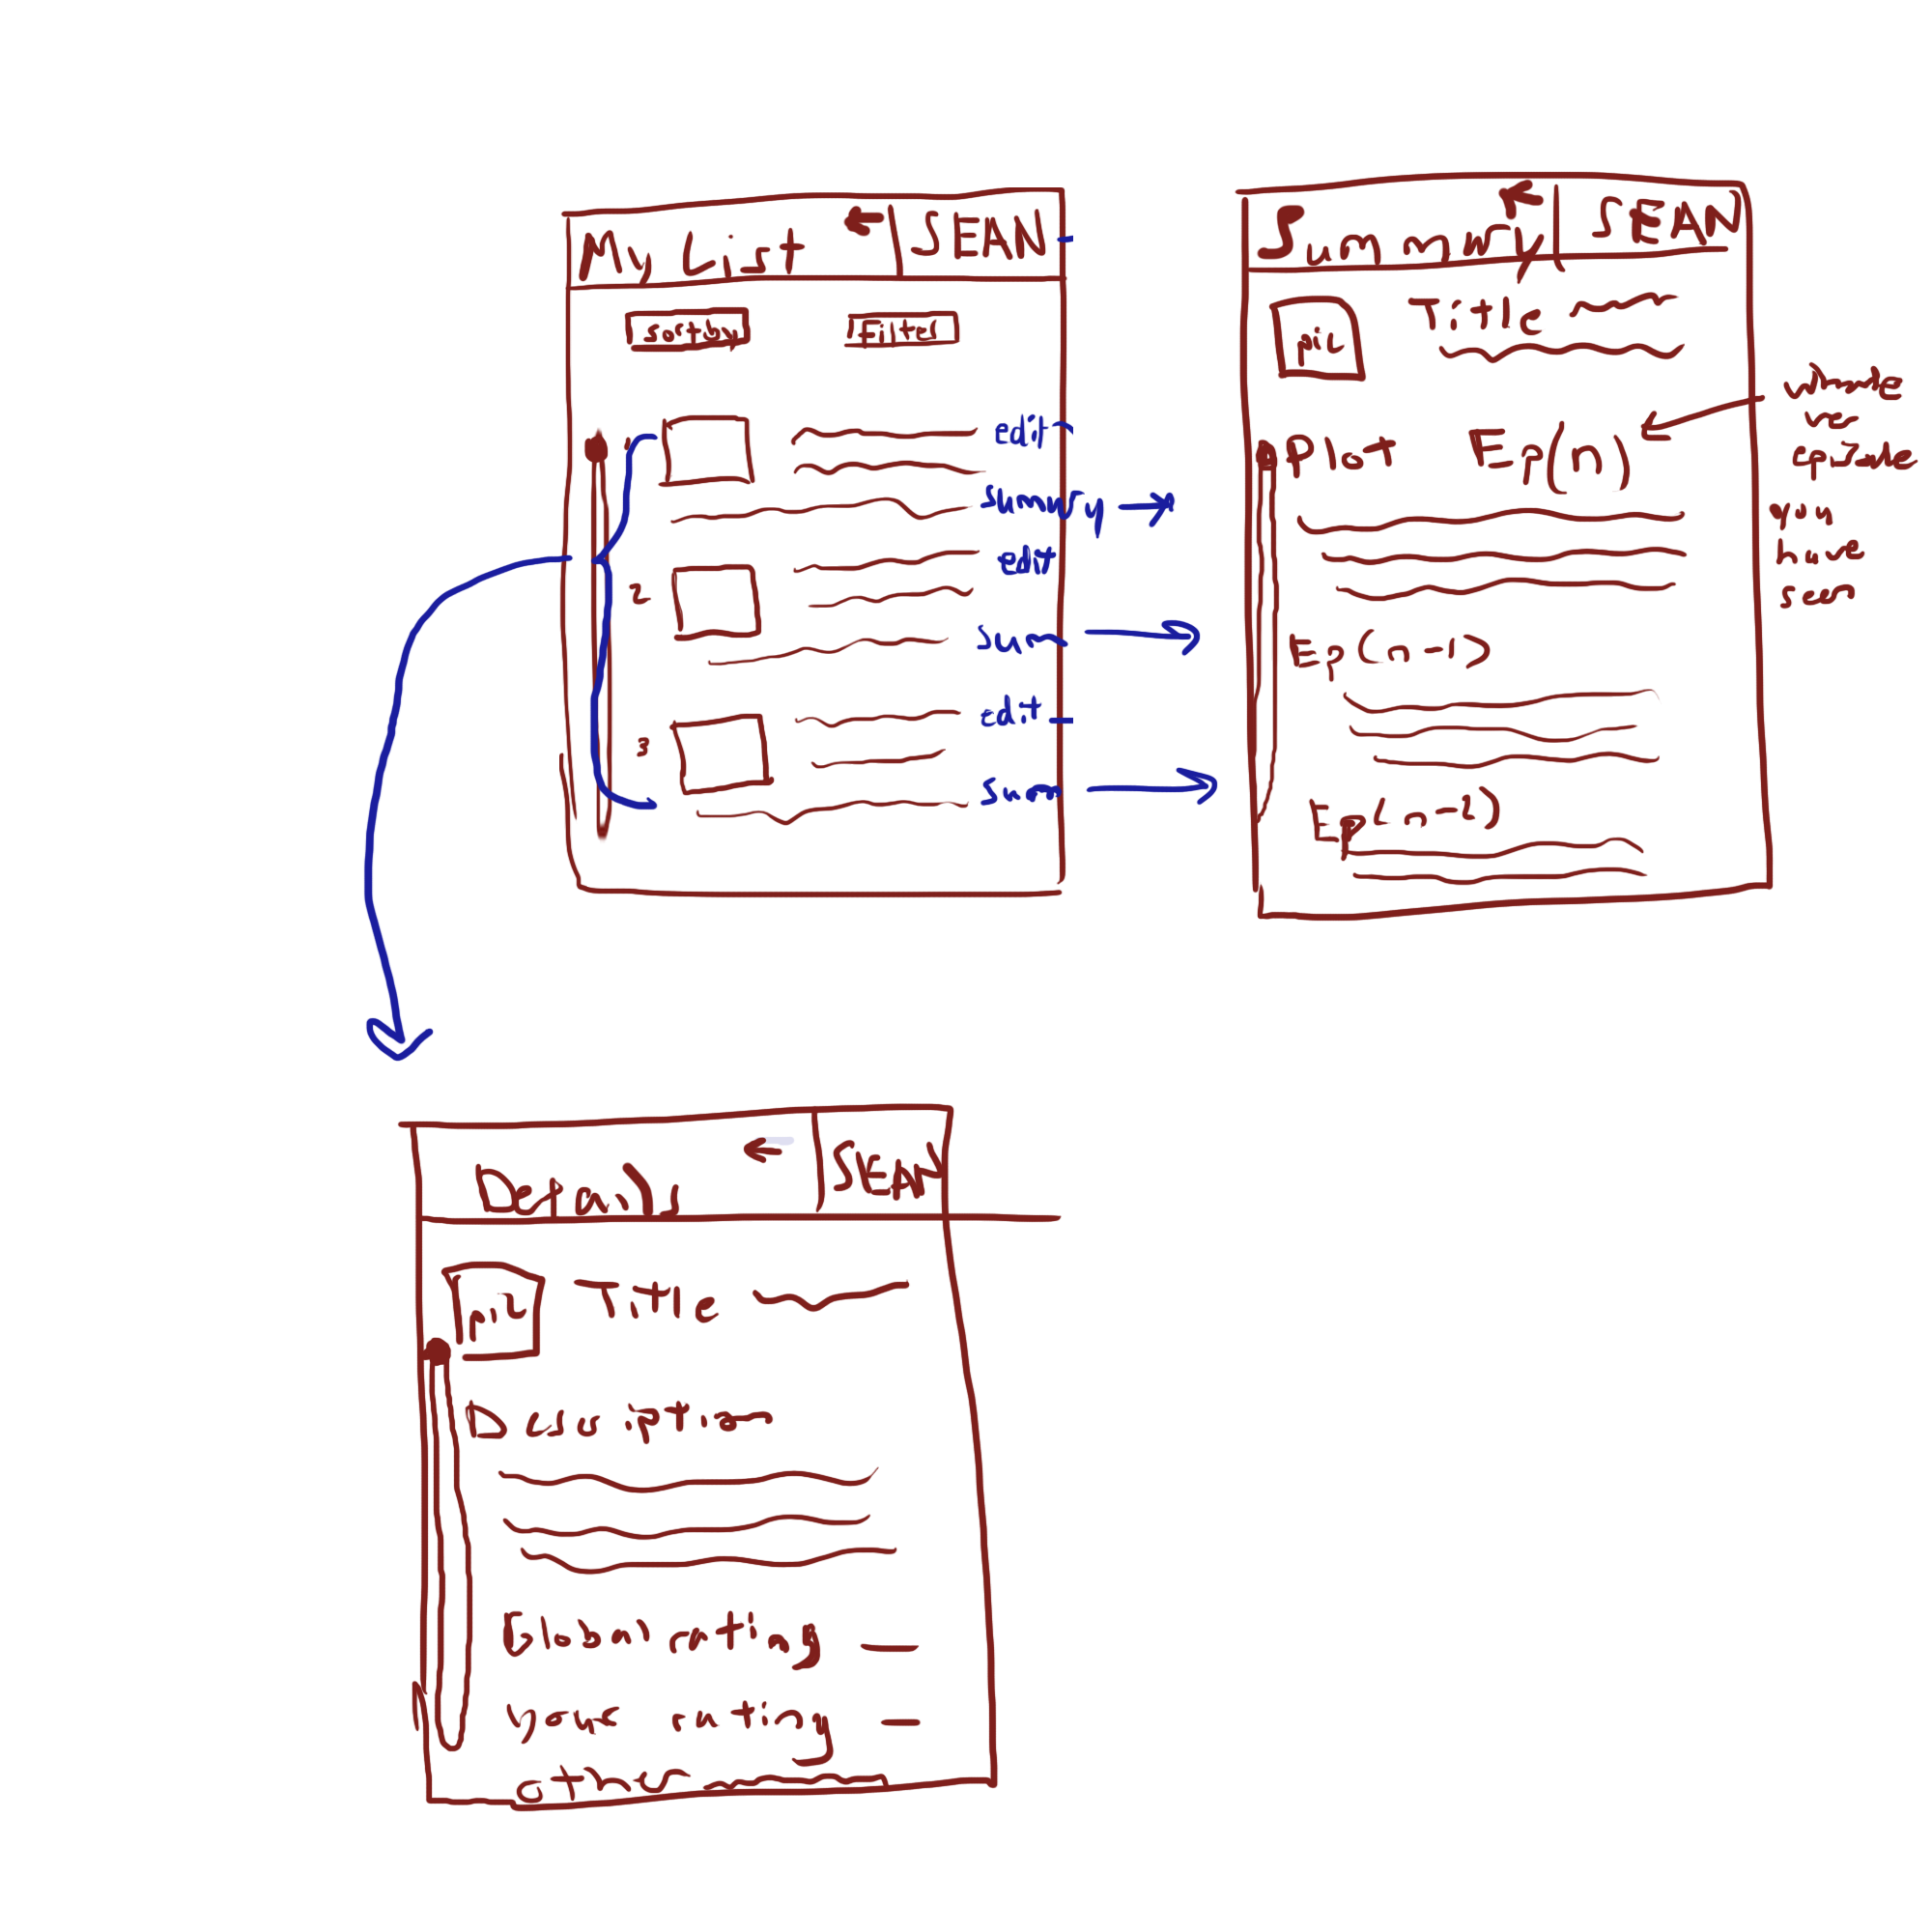 My List ← | SEAN
Sort by
Filter
1
edit
summry
2
edit
sum
3
edit
summ
Summary ← | SEAN
pic
Title
Plot Ep(n)
episode
you
have
seen
Ep(n-1)
Ep(n-2)
Details ← | SEAN
pic
Title
Description
Global rating
your rating
other